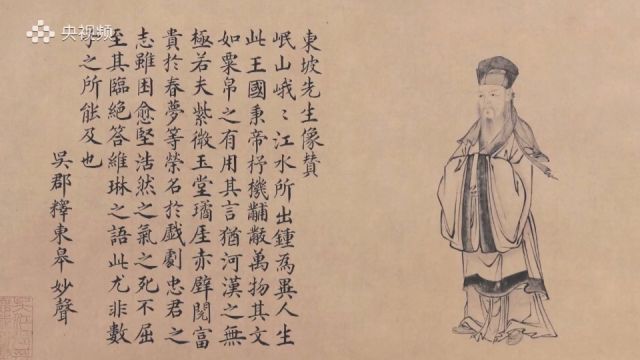 央视频
東坡先生像賛
岷山峨〻江水所出鍾為異人生
此王國秉帝杼機黼黻萬物其文
如粟帛之有用其言猶河漢之無
極若夫紫微玉堂璚厓赤壁閱富
貴於春夢等榮名於戲劇忠君之
志雖困愈堅浩然之氣之死不屈
至其臨絶答維琳之語此尤非數
子之所能及也
吳郡釋東皋妙聲